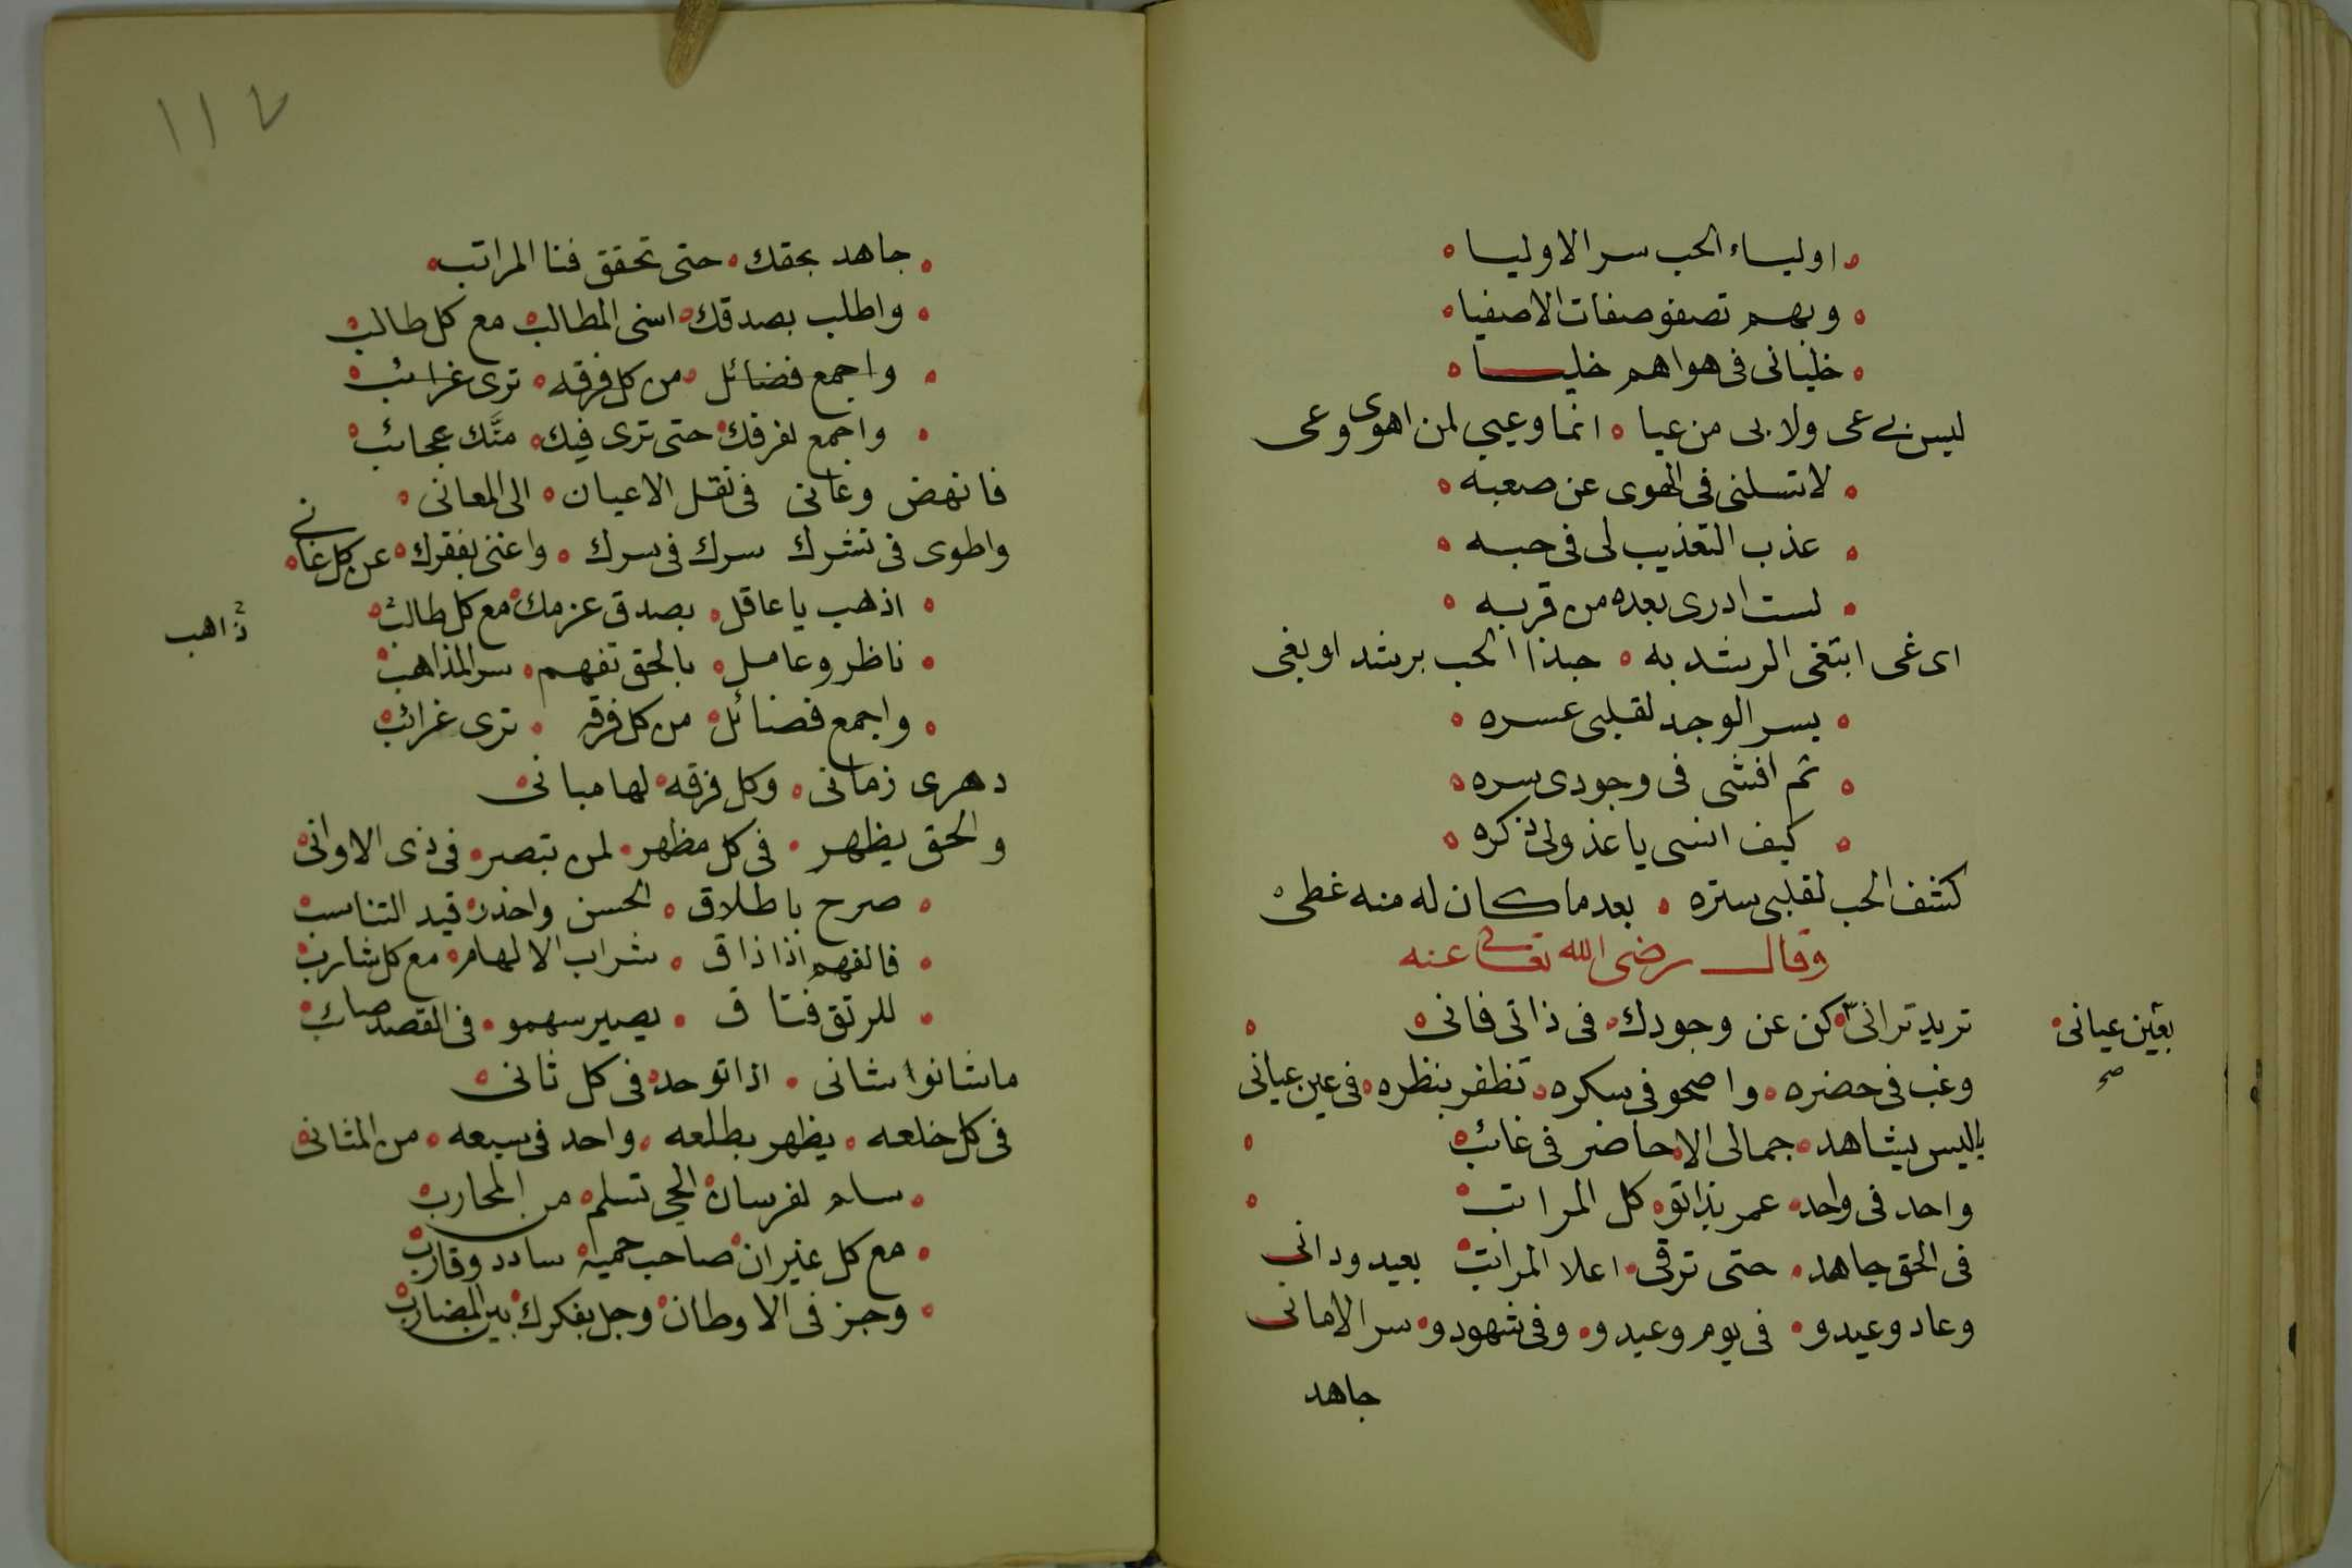 اولياء الحب سر الاوليا
وبهم تصفو صفات الاصفيا
خلياني في هواهم خليا
ليس بي عى ولا بى من عيا ه انما وعيي لمن اهوى وعى
لا تسلنى فى الهوى عن صعبه
عذب التعذيب لى فى حبه
لست ادرى بعده من قربه
اى غى ابتغى الرشد به ه حبذا الحب برشد او بغى
يسر الوجد لقلبى عسره
ثم افشى فى وجودى سره
كيف انسى يا عذولى ذكره
كشف الحب لقلبى ستره ه بعد ما كان له منه غطى
وقال رضى الله تعالى عنه
تريد ترانى كن عن وجودك فى ذاتى فانى
بعين عيانى
صح
وغب فى حضره واصحو فى سكره تظفر بنظره فى عين عيانى
ليس يشاهد جمالى الا حاضر فى غائب
واحد فى واحد عمر بذاتو كل المراتب
فى الحق جاهد حتى ترقى اعلا المراتب بعيد ودانى
وعاد وعيدو فى يوم وعيدو وفى شهودو سر الامانى
جاهد
١١٧
جاهد بحقك حتى تحقق فنا المراتب
واطلب بصدقك اسنى المطالب مع كل طالب
واجمع فضائل من كل فرقه ترى غرائب
واجمع لفرقك حتى ترى فيك منَّك عجائب
فانهض وعانى فى نقل الاعيان الى المعانى
واطوى فى نشرك سرك فى سرك واغنى بفقرك عن كل غانى
اذهب يا عاقل بصدق عزمك مع كل طالب
ذاهب
ناظر وعامل بالحق تفهم سر المذاهب
واجمع فضائل من كل فرقه ترى غرائب
دهرى زمانى وكل فرقه لها مبانى
والحق يظهر فى كل مظهر لمن تبصر فى ذى الاوانى
صرح باطلاق الحسن واحذر قيد التناسب
فالفهم اذا ذاق شراب الالهام مع كل شارب
للرتق فتاق يصير سهمو فى القصد صائب
ما شانوا شانى اذا توحد فى كل ثانى
فى كل خلعه يظهر بطلعه واحد فى سبعه من المثانى
سلم لفرسان الحى تسلم من المحارب
مع كل غيران صاحب حميه سادد وقارب
وجز فى الاوطان وجل بفكرك بين المضارب